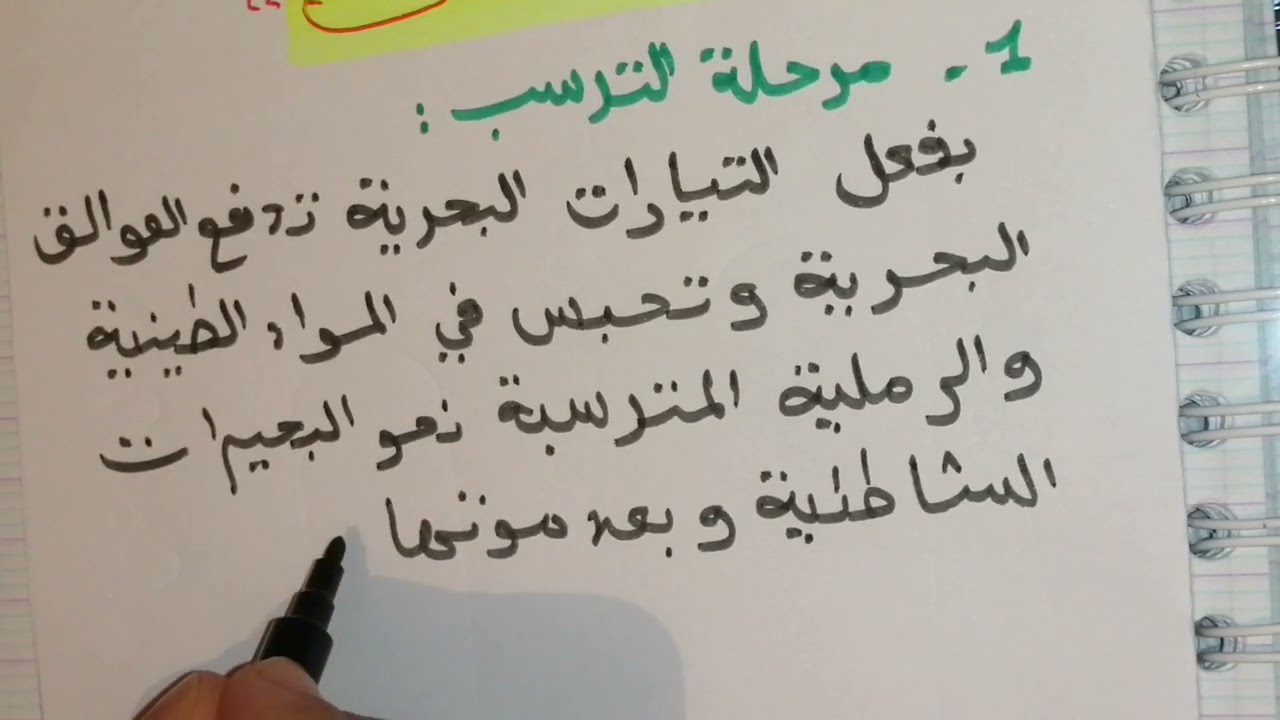 1 - مرحلة الترسب :
بفعل التيارات البحرية تدفع العوالق
البحرية وتحبس في المواد الطينية
والرملية المترسبة نحو البحيرات
الشاطئية وبعد موتها